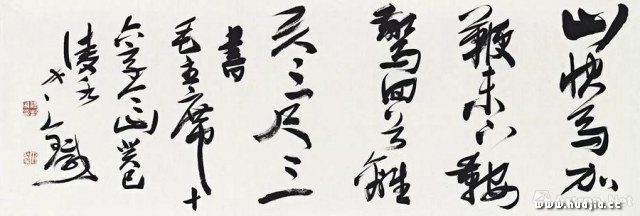 山快馬加
鞭未下鞍
驚回首離
天三尺三
書
毛主席十
六字令山癸巳
www.huajia.cc